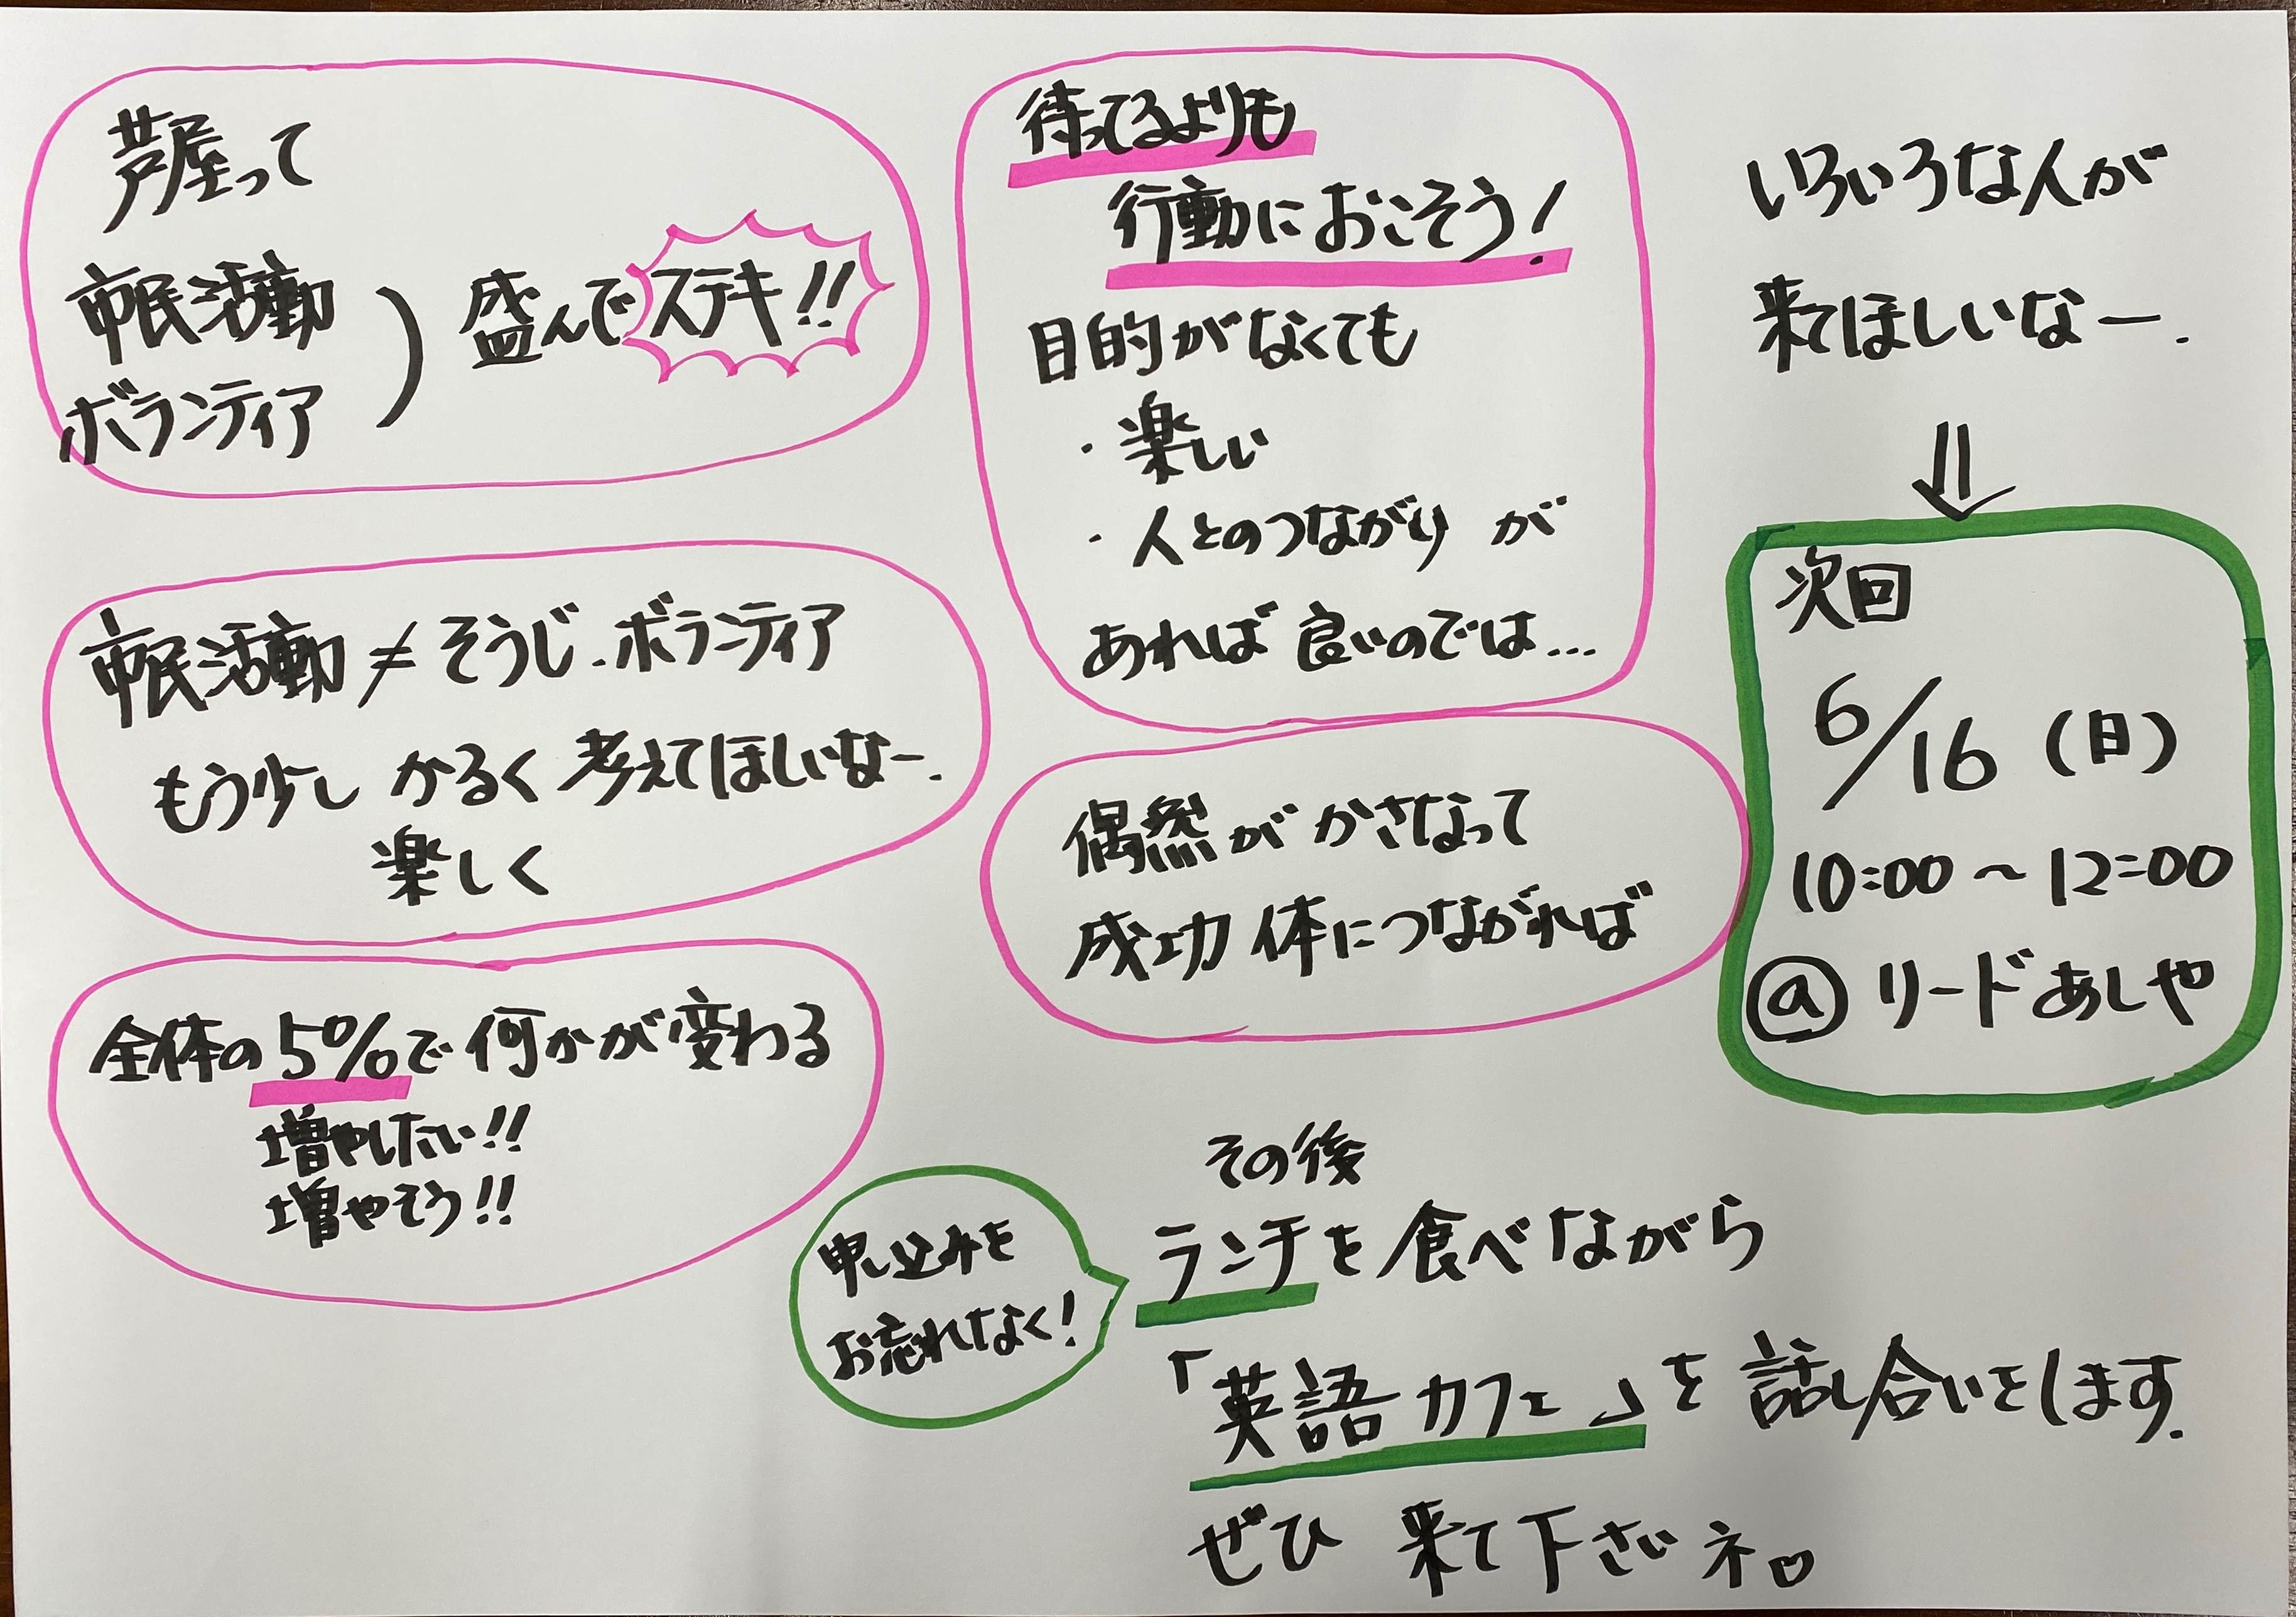 芦屋って
市民活動
ボランティア
) 盛んでステキ!!
市民活動≠そうじ.ボランティア
もう少し かるく 考えてほしいなー.
楽しく
全体の5%で 何かが変わる
増やしたい!!
増やそう!!
待ってるよりも
行動におこそう!
目的がなくても
・楽しい
・人とのつながり が
あれば 良いのでは...
偶然が かさなって
成功 体につながれば
いろいろな人が
来てほしいなー.
⇓
次回
6/16(日)
10:00~12:00
@ リードあしや
その後
ランチを食べながら
申し込みを
お忘れなく!
「英語カフェ」を 話し合いをします.
ぜひ 来て下さいネ♡